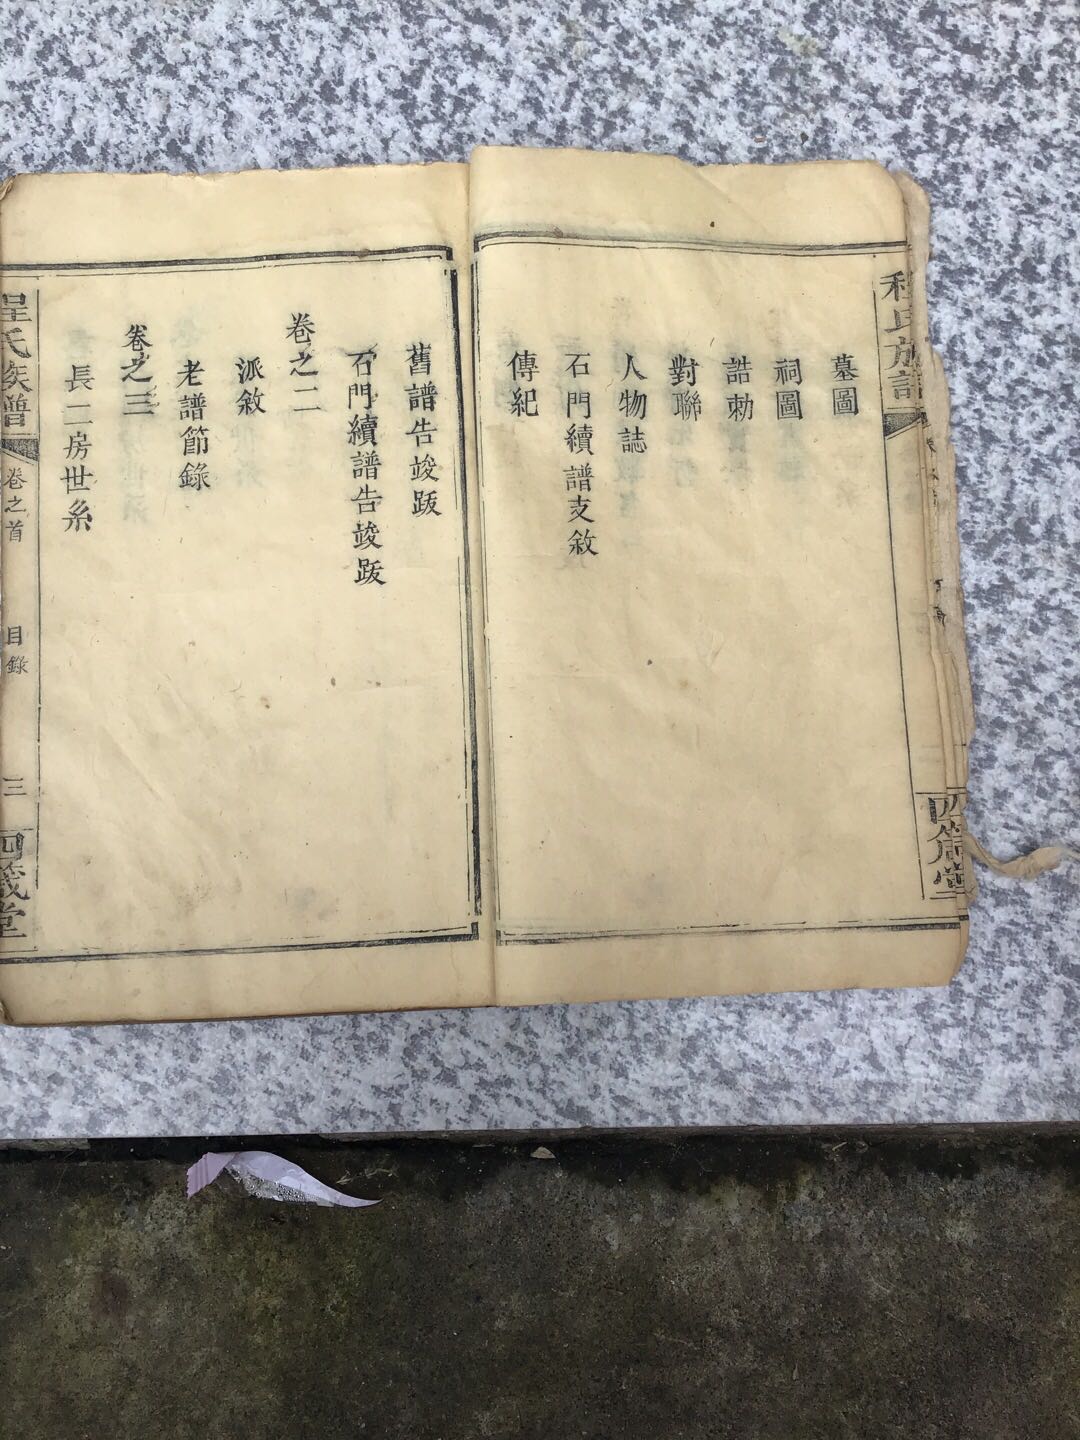 程氏族譜
四箴堂
墓圖
祠圖
誥勅
對聯
人物誌
石門續譜支敘
傳紀
舊譜告竣跋
石門續譜告竣跋
卷之二
派敘
老譜節錄
卷之三
長二房世系
程氏族譜
卷之首
目錄
三
四箴堂